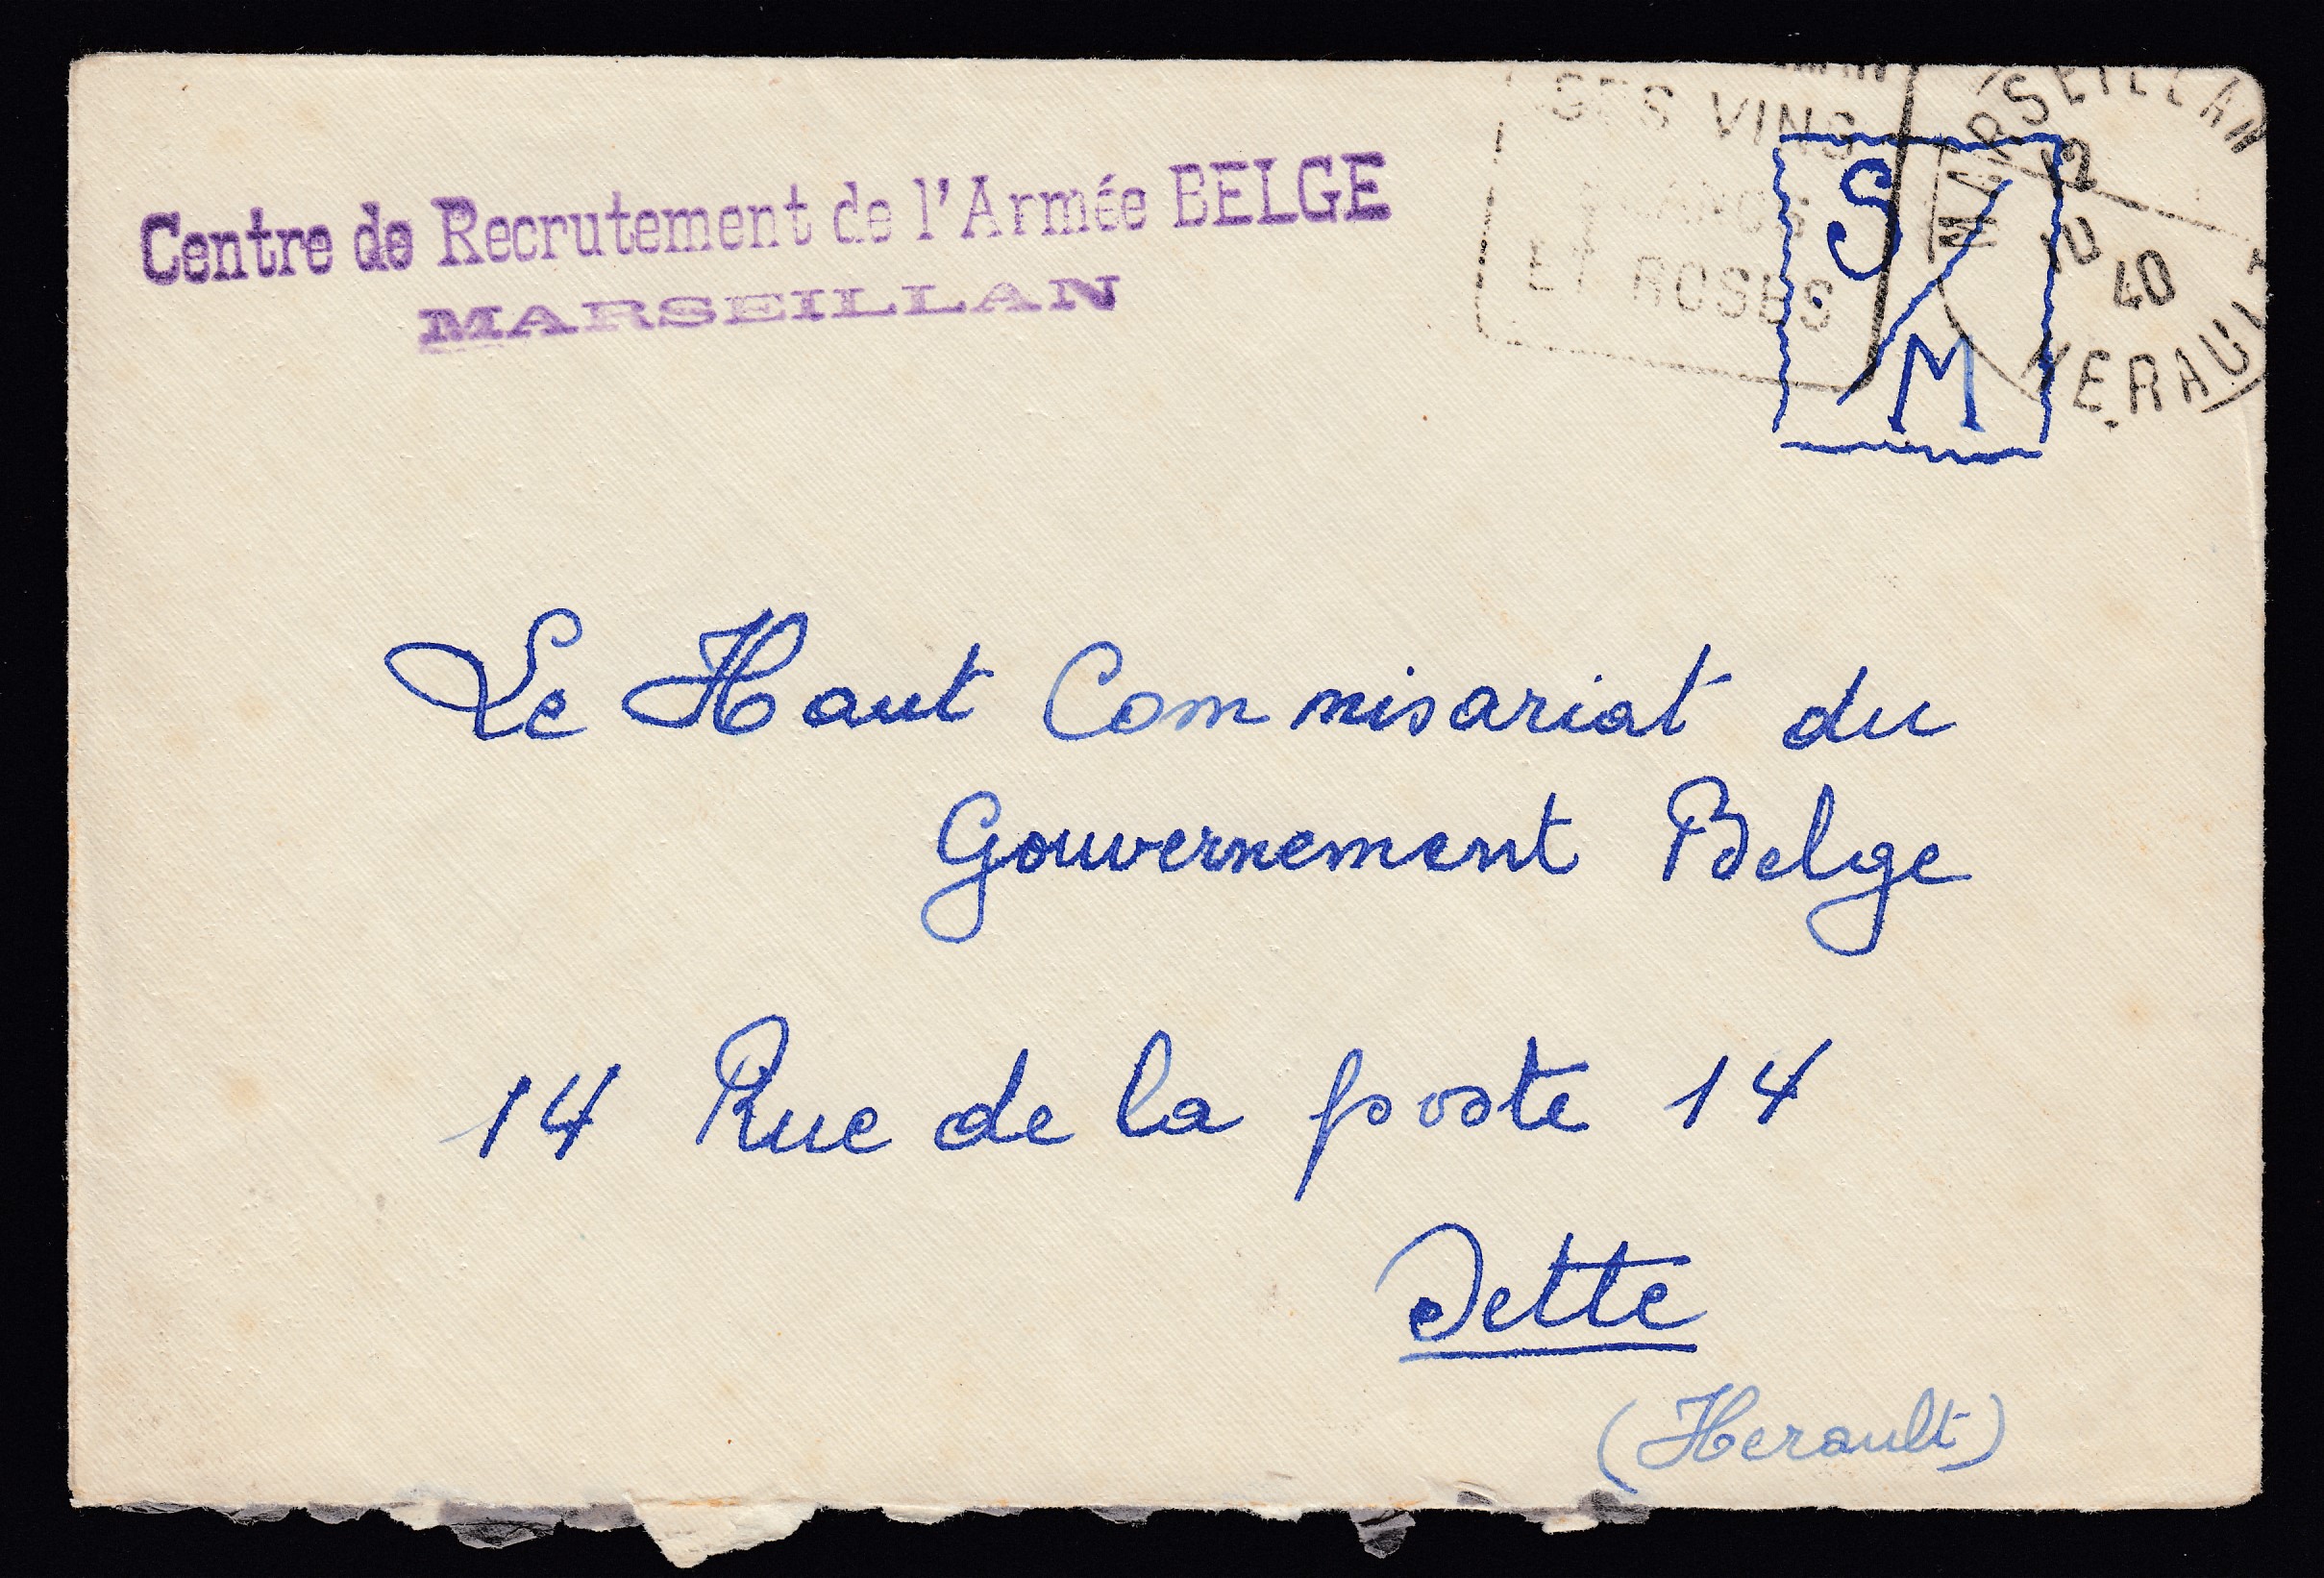 Centre de Recrutement de l'Armée BELGE
MARSEILLAN
SES VINS
ET ROSES
MARSEILLAN
12
10
40
HERAULT
S/M
Le Haut Commisariat du
Gouvernement Belge
14 Rue de la poste 14
Sette
(Herault)